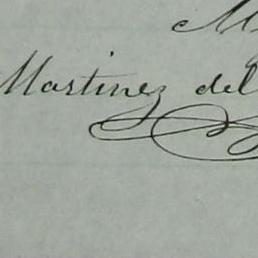 M
Martinez del